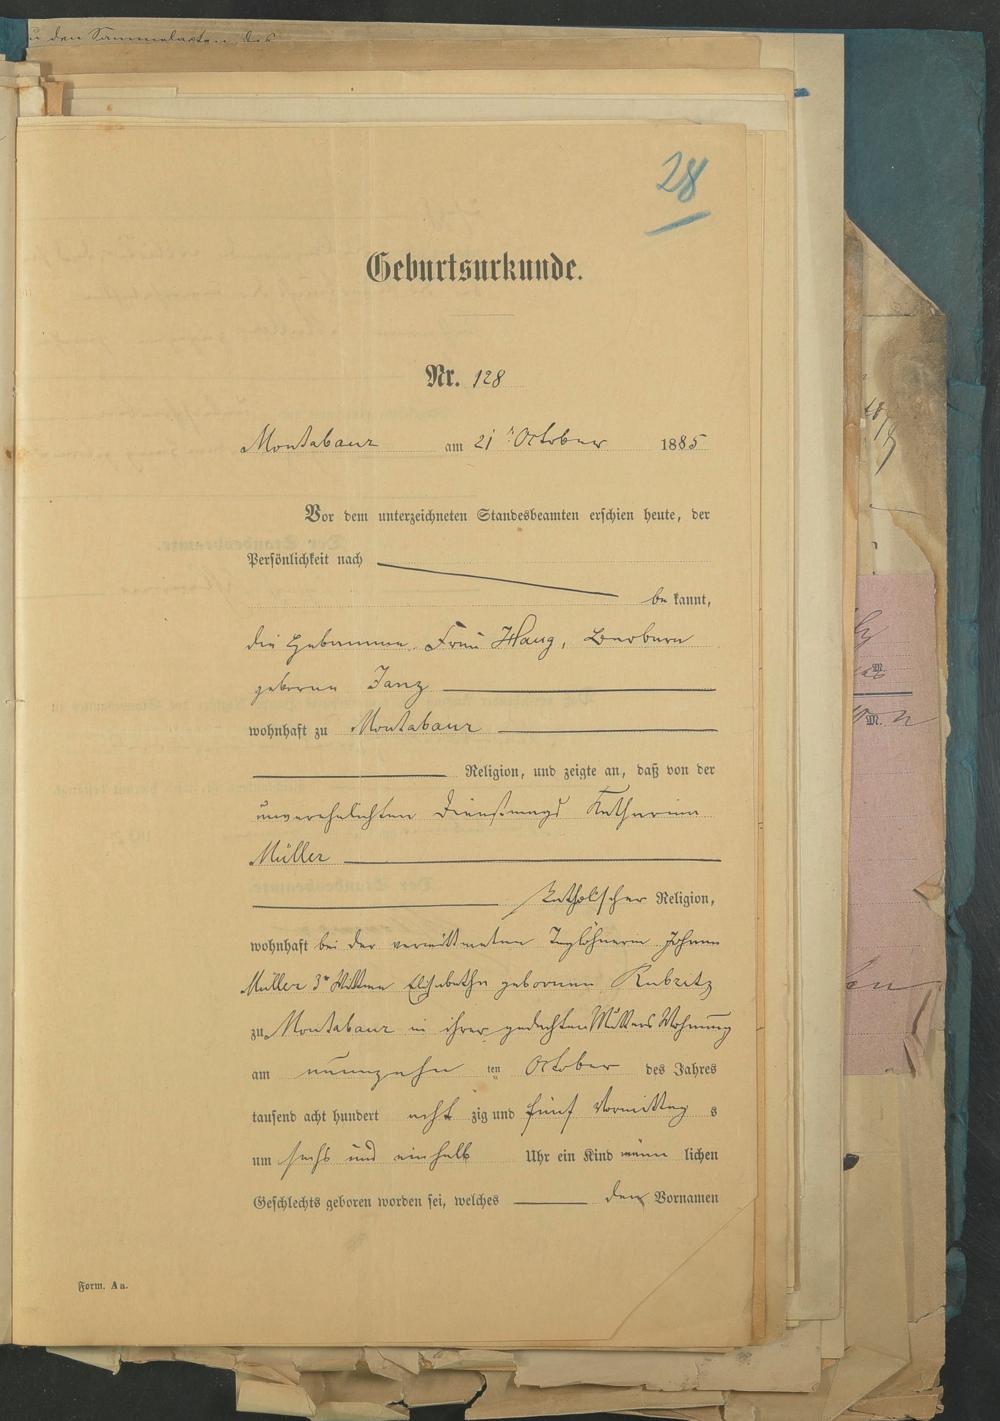 zu den Sammelakten des
28
Geburtsurkunde.
Nr. 128
Montabaur am 21ᵗ October 1885
Vor dem unterzeichneten Standesbeamten erschien heute, der
Persönlichkeit nach
be kannt,
die Hebamme Frau Haug, Barbara
geborne Janz
wohnhaft zu Montabaur
Religion, und zeigte an, daß von der
unverehelichten Dienstmagd Katharina
Müller
katholischer Religion,
wohnhaft bei der verwittweten Taglöhnerin Johann
Müller 3ʳ Wittwe Elisabetha geborenen Kubritz
zu Montabaur in ihrer gedachten Mutters Wohnung
am neunzehn ten October des Jahres
tausend acht hundert acht zig und fünf Vormittag s
um sechs und einhalb Uhr ein Kind männ lichen
Geschlechts geboren worden sei, welches den Vornamen
Form. Aa.